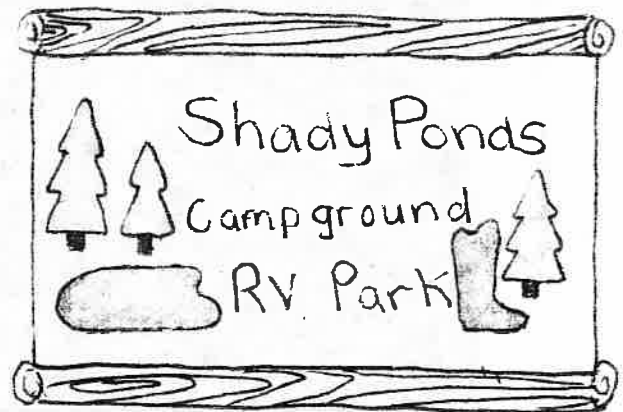 Shady Ponds
Campground
RV Park